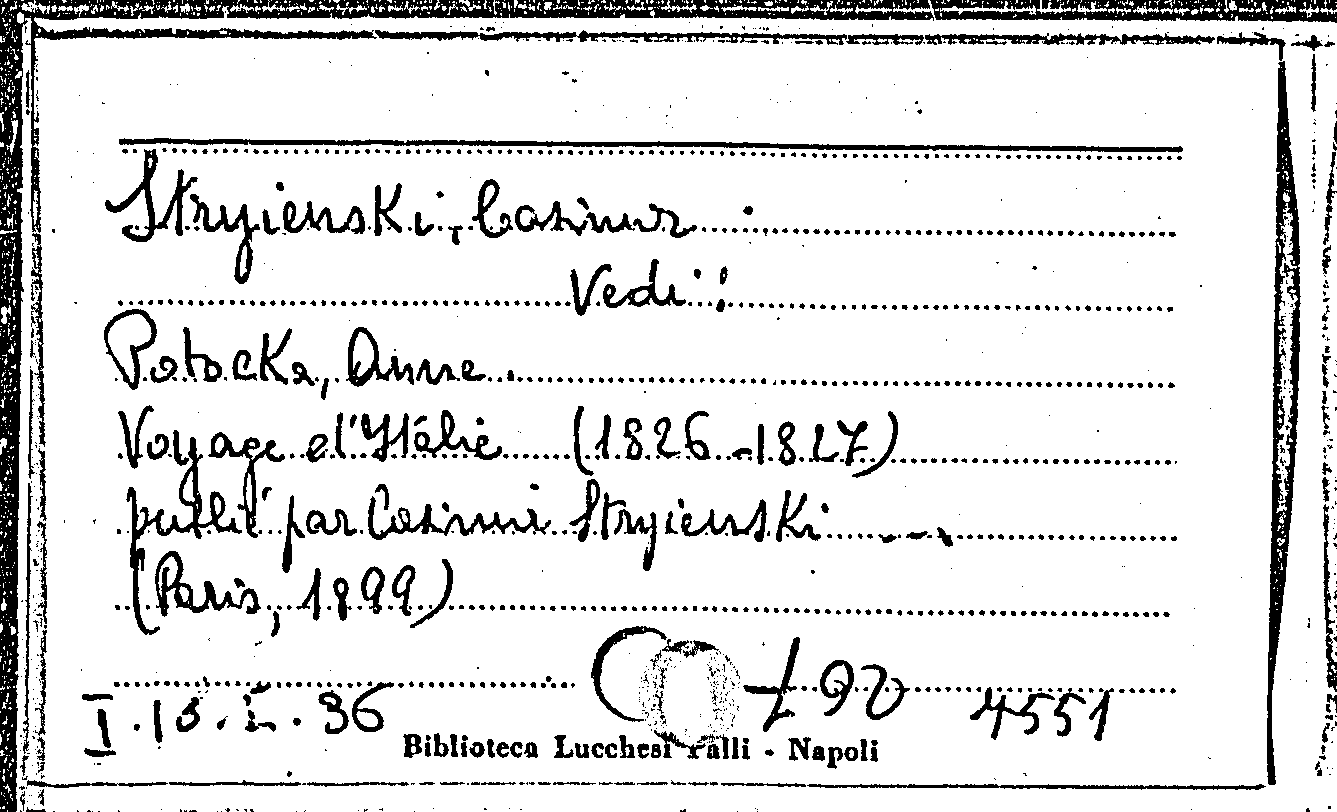 Stryienski, Casimir
Vedi:
Potocka, Anne.
Voyage d'Italie (1826-1827)
publié par Casimir Stryienski
(Paris, 1899)
I.13.I.36 4551
Biblioteca Lucchesi Palli - Napoli